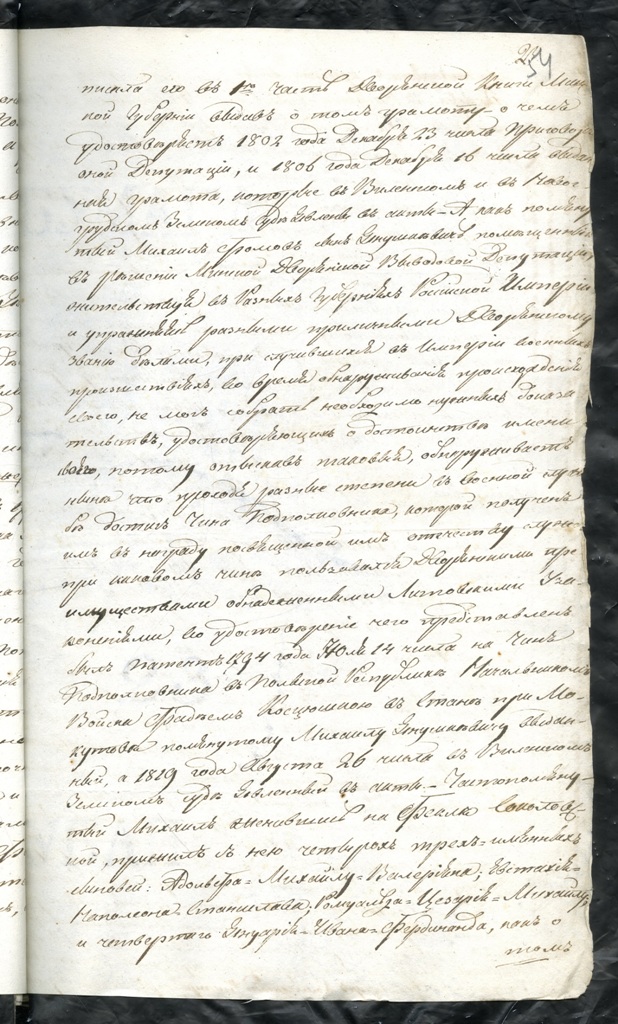 54
писала его въ 1ю часть Дворянской Книги Минс
кой Губерніи выдавъ о томъ грамоту о чемъ
удостовѣряетъ 1802 года Декабря 23 числа
оной Депутаціи, и 1806 года Декабря 16 числа выдан
ная грамота, которые въ Виленскомъ и въ Новог
рудскомъ Земскомъ Судѣ явлены въ акты А какъ помяну
тый Михаилъ Янушкевичъ
въ рѣшеніи Минской Дворянской Выводовой Депутаціи
жительствуя въ разныхъ Губерніяхъ Россійской Имперіи
и упражняясь разными приличными Дворянскому
званію дѣлами, при случившихся въ Имперіи военныхъ
происшествіяхъ, во время обнаруживанія происхожденія
своего, не могъ собрать необходимо нужныхъ доказа
тельствъ, удостовѣряющихъ о достоинствѣ имени
своего, потому отыскавъ таковыя, обнаруживаетъ
нынѣ что проходя разные степени въ военной служ
бѣ достигъ Чина Подполковника, которой полученъ
имъ въ награду посвященной имъ отечеству служ
при каковомъ чинѣ пользовался Дворянскими пре
имуществами обнадеженными Литовскими Уза
коненіями, во удостовѣреніе чего представленъ
былъ патентъ 1794 года Іюля 14 числа на Чинъ
Подполковника въ Польской Республикѣ Начальникомъ
Войска Фадѣемъ Косцюшкою въ Станѣ при Мо
кутовѣ помянутому Михаилу Янушкевичу выдан
ный, а 1819 года Августа 26 числа въ Виленскомъ
Земскомъ Судѣ явленный въ акты. Частопомяну
тый Михаилъ женившись на Феклѣ Соколовс
кой, прижилъ съ нею четырехъ трехъ-именныхъ
сыновей: Адольфа-Михайлу-Валеріяна, Евстахія-
Наполеона-Станислава, Ромуальда-Цезарія-Михайлу,
и четвертаго Януарія-Ивана-Фердинанда, какъ о
томъ